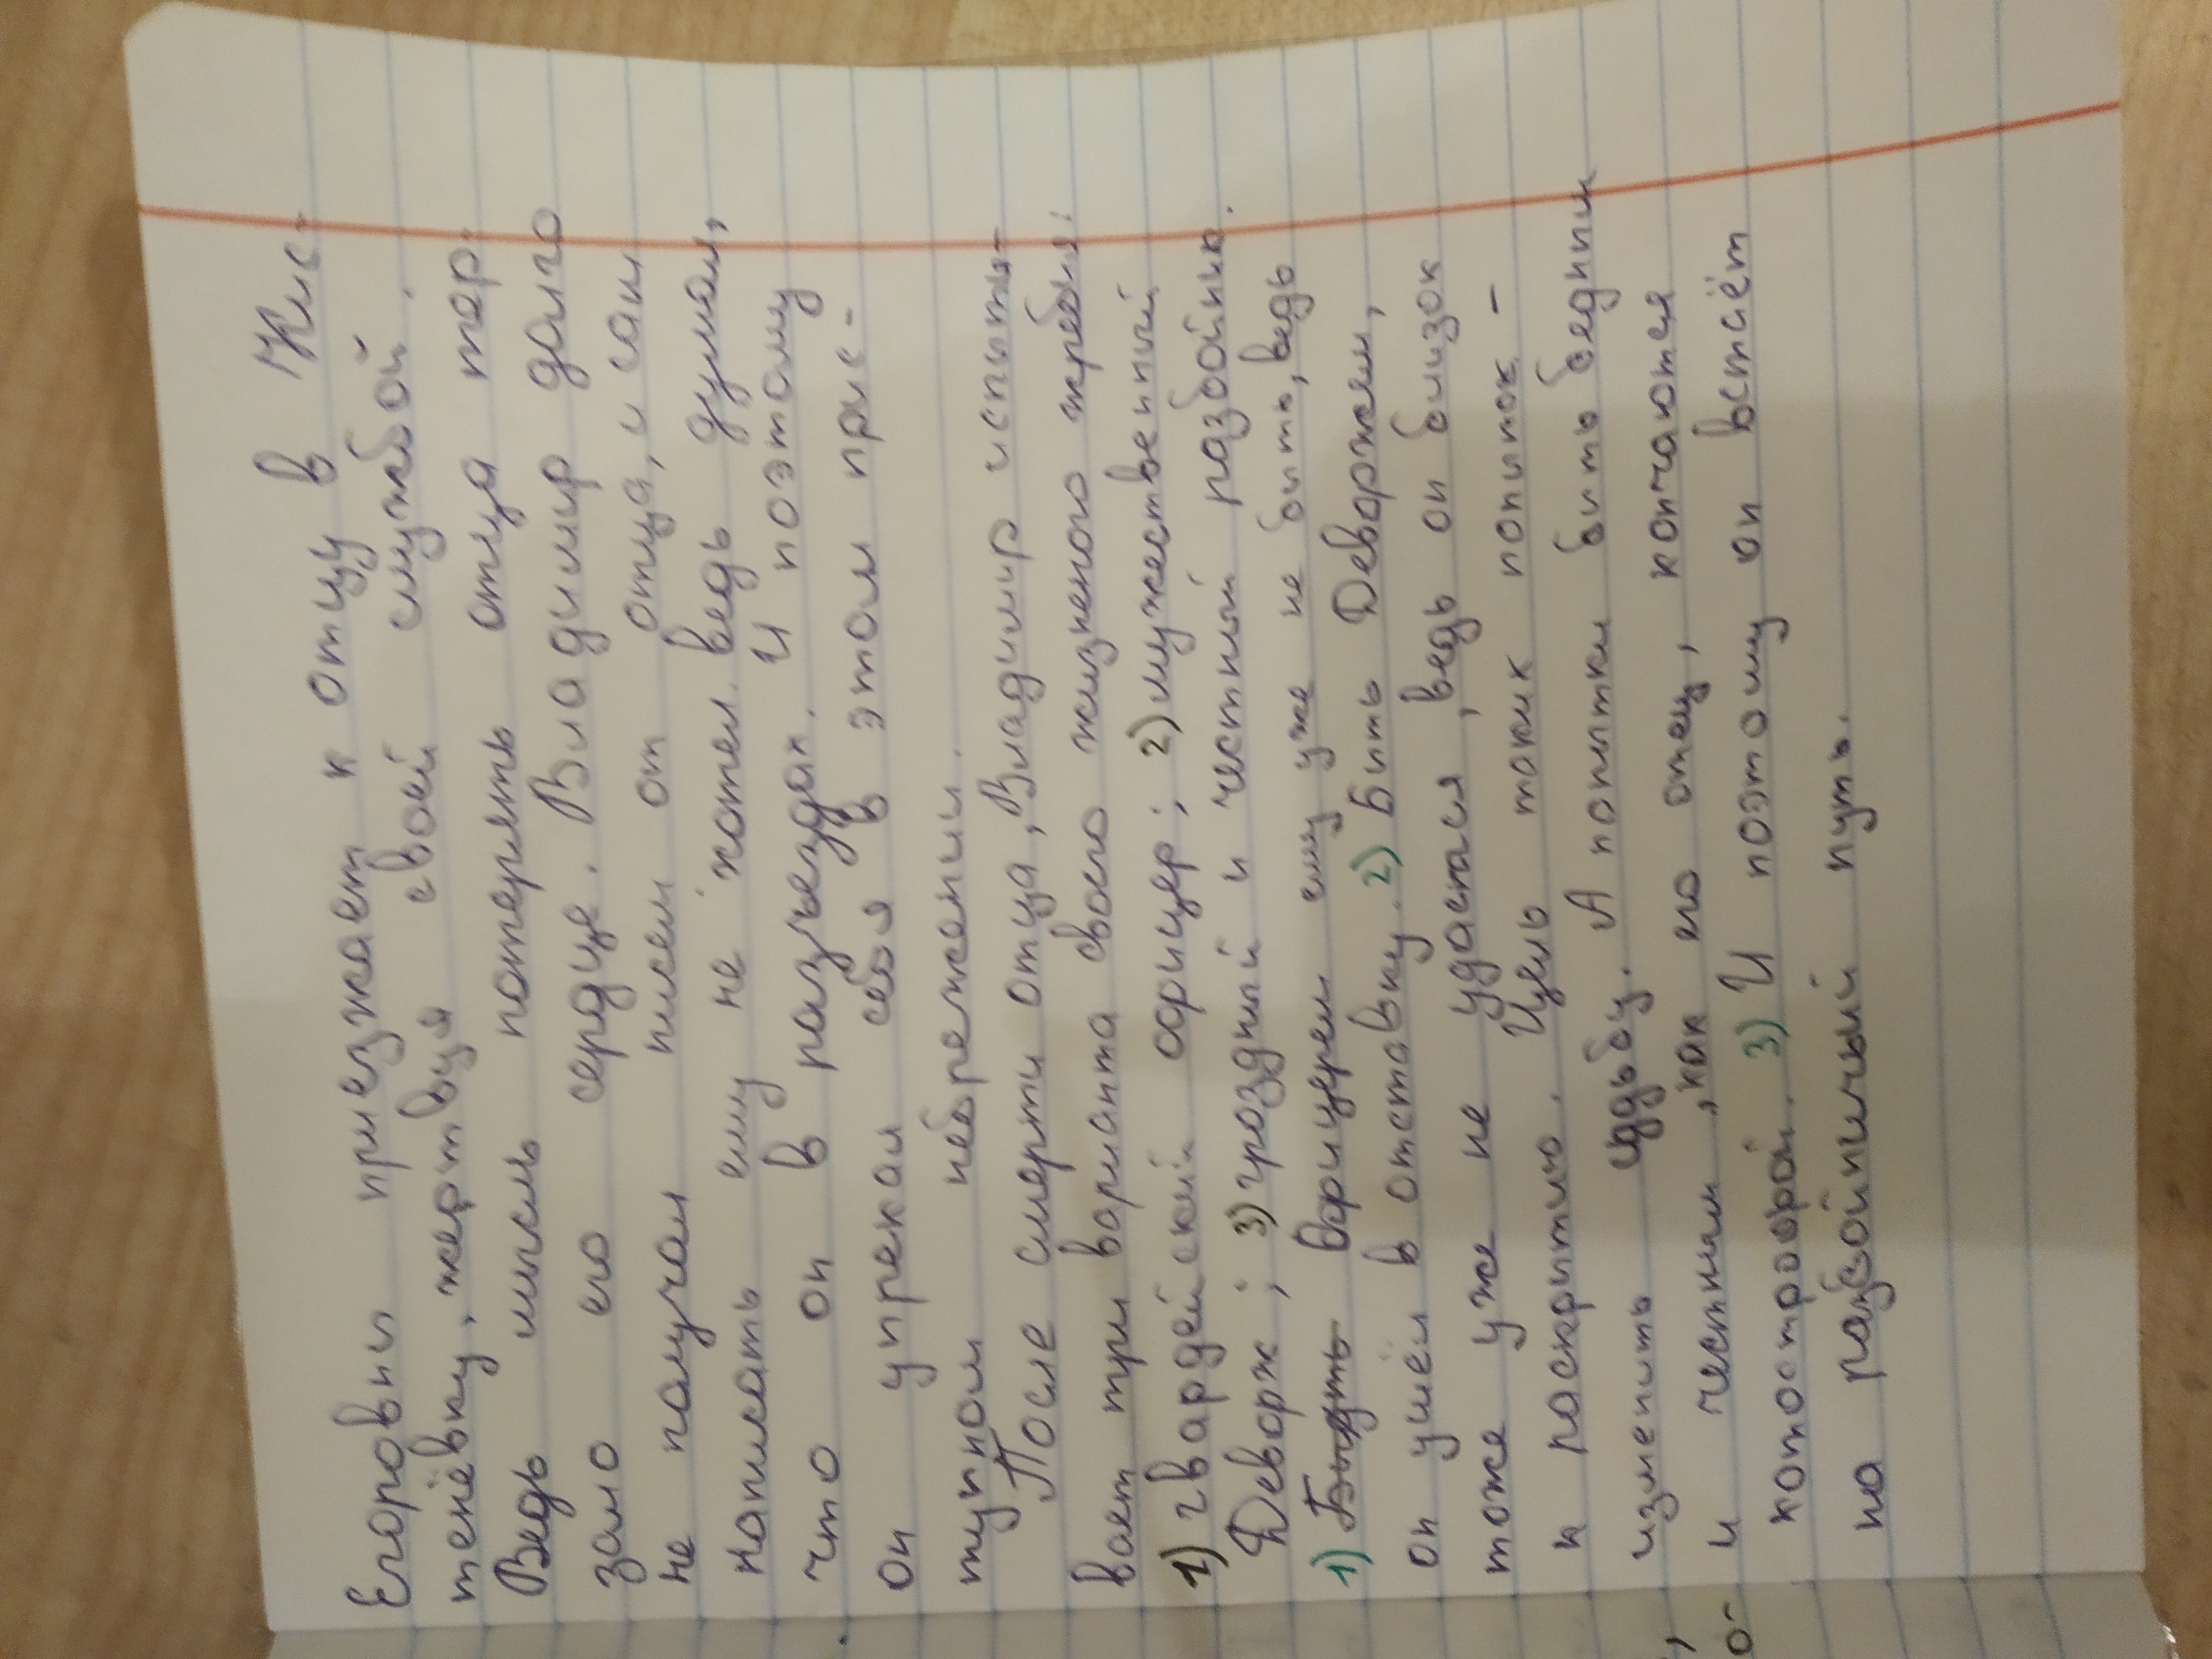 Егоровны приезжает к отцу в Кис-
тенёвку, жертвуя своей службой.
Ведь мысль потерять отца тер-
зало его сердце. Владимир долго
не получал писем от отца, и сам
написать ему не хотел. ведь думал,
что он в разъездах. И поэтому
он упрекал себя в этом прис-
тупном небрежении.
После смерти отца, Владимир испыты-
вает три варианта своего жизненого жребия:
1) гвардейский офицер; 2) мужественный
Дефорж; 3) гроздный и честный разбойник.
1) Быть офицерем ему уже не быть, ведь
он ушёл в отставку. 2) Быть Дефоржем,
тоже уже не удастся, ведь он близок
к раскрытию. Цель таких попыток -
изменить судьбу. А попытки быть бедным
и честным, как его отец, кончаются
котострофой. 3) И поэтому он встаёт
на разбойничьий путь.
о-